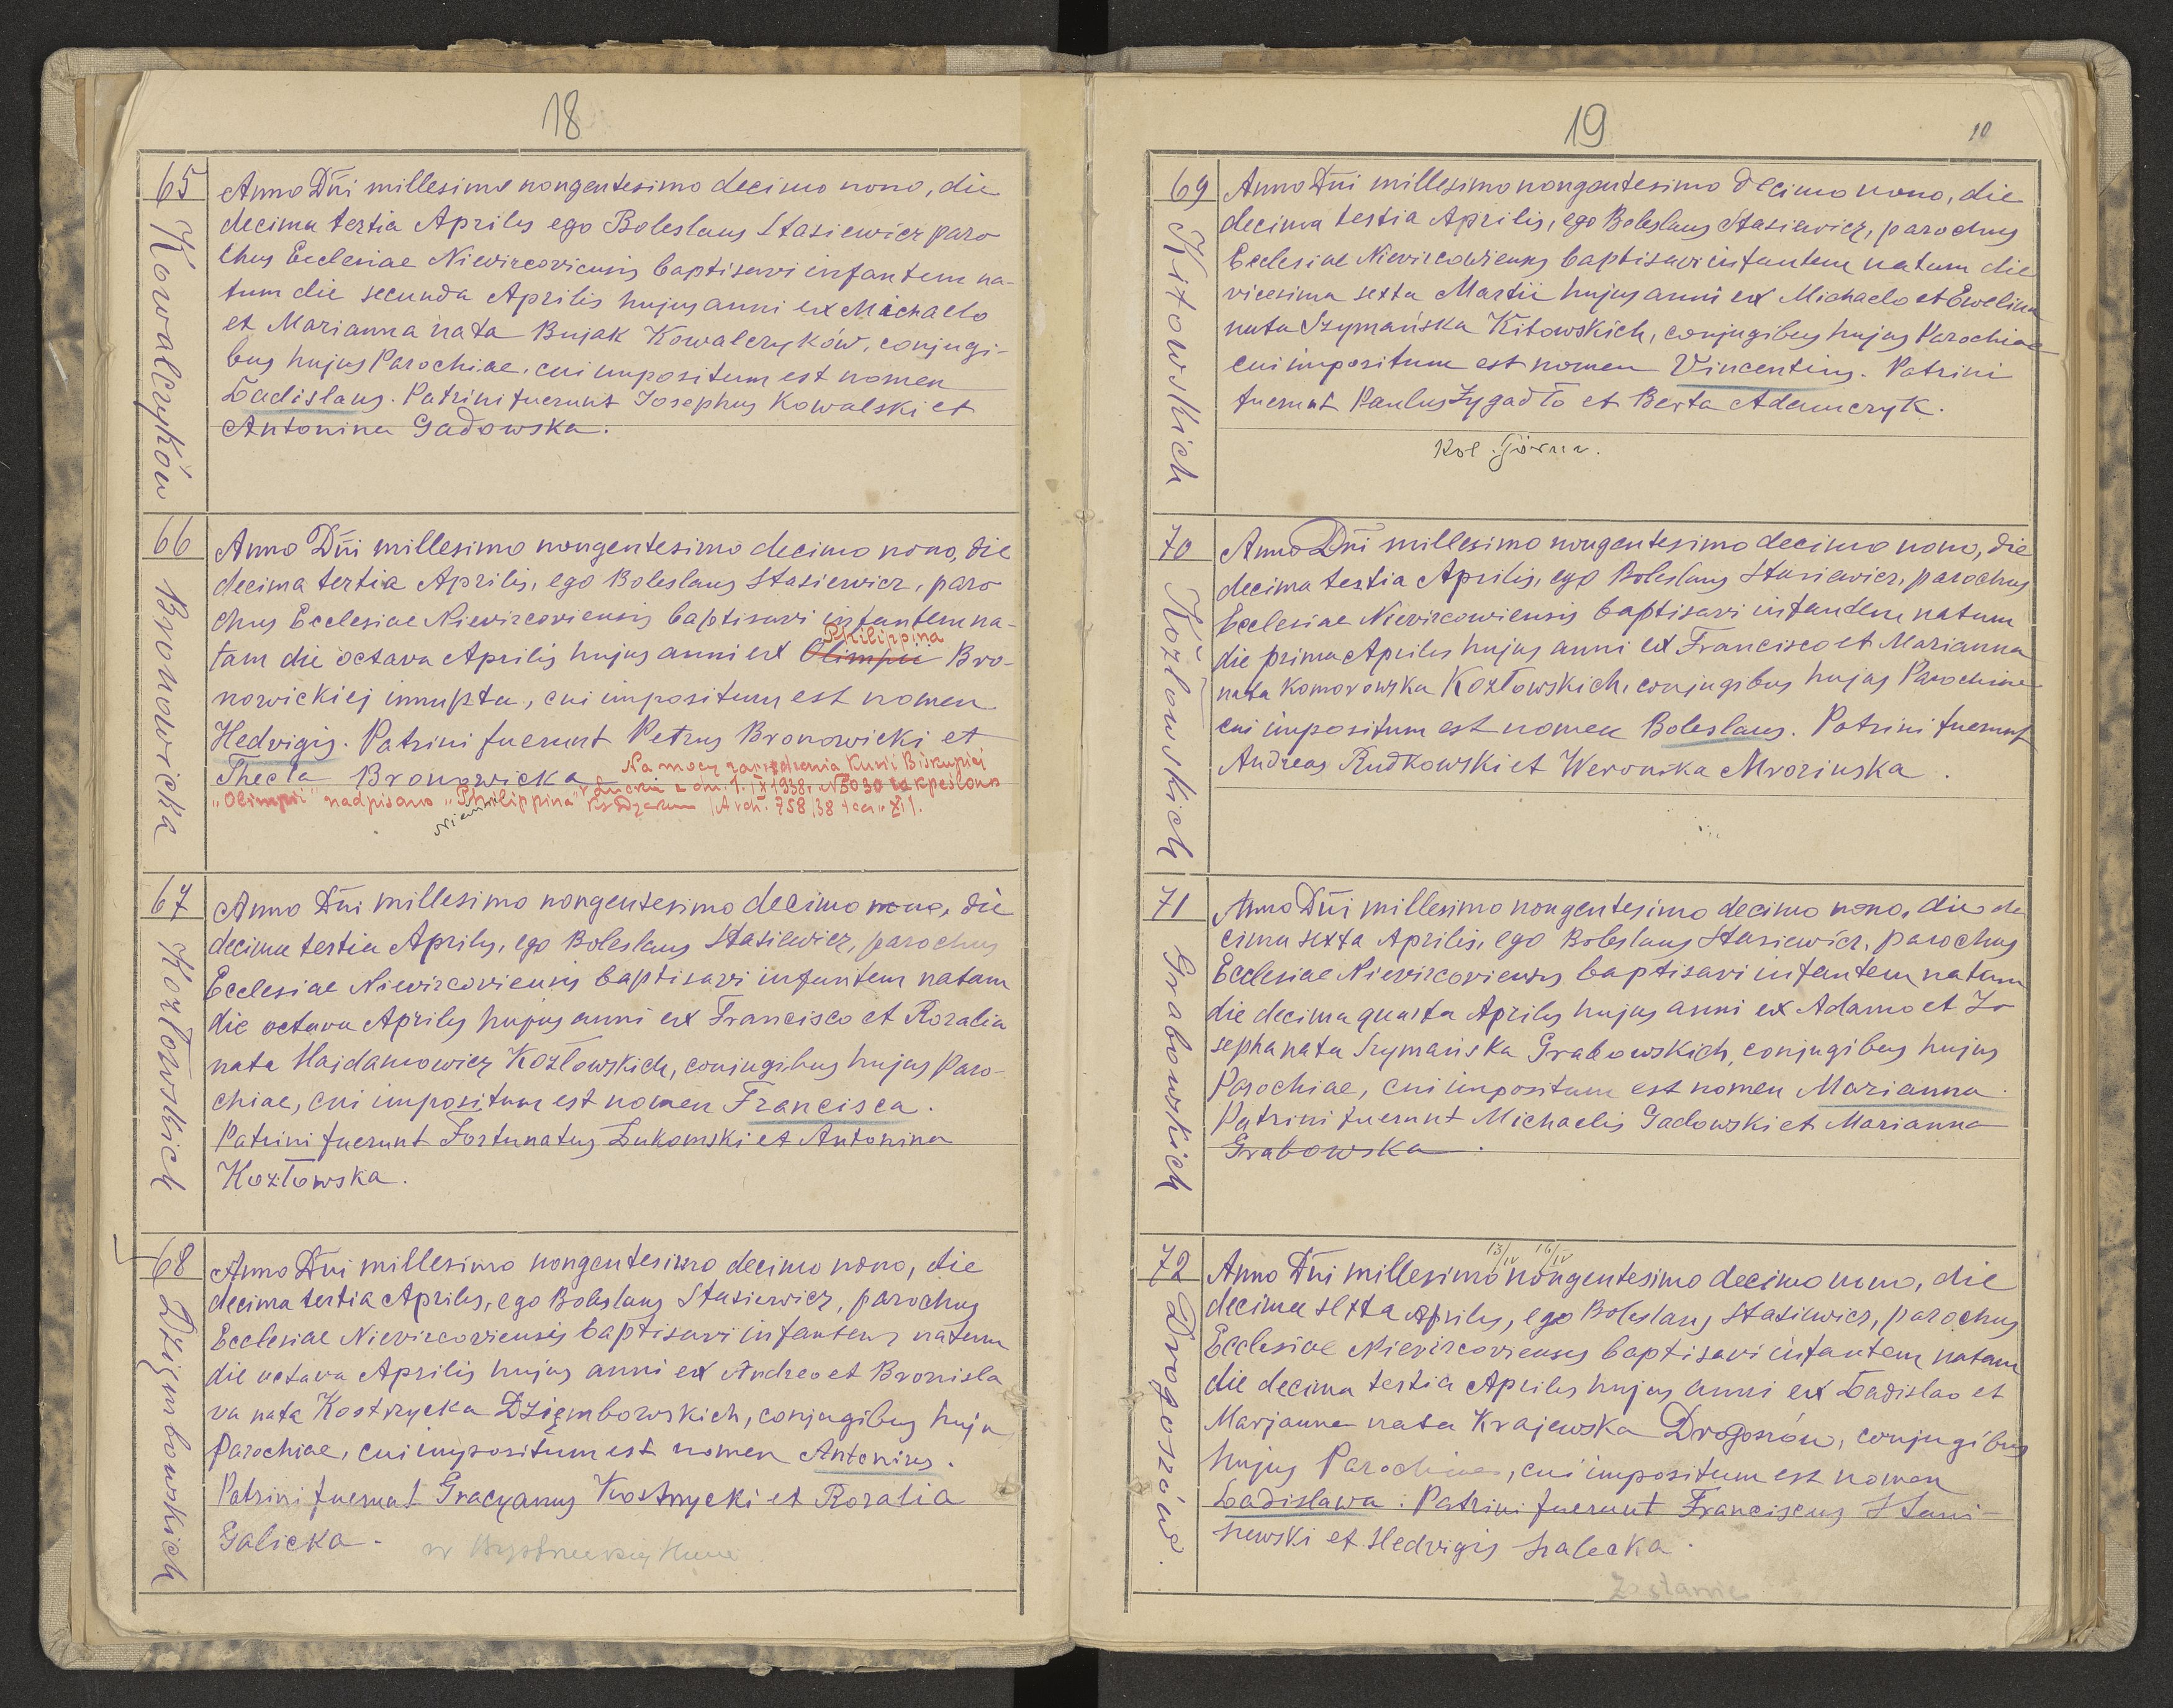 18
65
Kowalczyków
Anno Dñi millesimo nongentesimo decimo nono, die
decima tertia Aprilis ego Boleslaus Stasiewicz paro
chus Ecclesiae Niewirzoviensis baptisavi infantem na-
tum die secunda Aprilis hujus anni ex Michaelo
et Marianna nata Bujak Kowalczyków, conjugi-
bus hujus Parochiae, cui impositum est nomen
Ładislaus. Patrini fuerunt Josephus Kowalski et
Antonina Gadowska.
66
Bronowicka
Anno Dñi millesimo nongentesimo decimo nono, die
decima tertia Aprilis, ego Boleslaus Stasiewicz, paro
chus Ecclesiae Niewirzoviensis baptisavi infantem na-
Philippina
tam die octava Aprilis hujus anni ex Olimpii Bro-
nowickiej innupta, cui impositum est nomen
Hedvigis. Patrini fuerunt Petrus Bronowicki et
Thecla Bronowicka
Na mocy zarządzenia Kurii Biskupiej
w Łucku z dn. 1. IX 1938 r. N 5030 wykreślono
"Olimpii" nadpisano "Philippina" Ks Dziekan /Arch. 758/38
67
Kozłowskich
Anno Dñi millesimo nongentesimo decimo nono, die
decima tertia Aprilis, ego Boleslaus Stasiewicz, parochus
Ecclesiae Niewirzoviensis baptisavi infantem natam
die octava Aprilis hujus anni ex Francisco et Rozalia
nata Hajdamowicz Kozłowskich, conjugibus hujus Paro-
chiae, cui impositum est nomen Francisca.
Patrini fuerunt Fortunatus Łukomski et Antonina
Kozłowska.
68
Dzięmbowskich
Anno Dñi millesimo nongentesimo decimo nono, die
decima tertia Aprilis, ego Boleslaus Stasiewicz, parochus
Ecclesiae Niewirzoviensis baptisavi infantem natum
die octava Aprilis hujus anni ex Andreo et Bronisla
va nata Kostrzycka Dzięmbowskich, conjugibus huju
Parochiae, cui impositum est nomen Antonius.
Patrini fuerunt Gracyanus Kostrzycki et Rozalia
Galicka.
19
10
69
Kitowskich
Anno Dñi millesimo nongentesimo decimo nono, die
decima tertia Aprilis, ego Boleslaus Stasiewicz, parochus
Ecclesiae Niewirzowiensis baptisavi infantem natum die
vicesima sexta Martii hujus anni ex Michaelo et Ewelina
nata Szymańska Kitowskich, conjugibus hujus Parochiae
cui impositum est nomen Vincentius. Patrini
fuerunt Paulus Zygadło et Berta Adamczyk.
Kol. Górna.
70
Kozłowskich
Anno Dñi millesimo nongentesimo decimo nono, die
decima tertia Aprilis, ego Boleslaus Stasiewicz, parochus
Ecclesiae Niewirzowiensis baptisavi infantem natum
die prima Aprilis hujus anni ex Francisco et Marianna
nata Komorowska Kozłowskich, conjugibus hujus Parochiae
cui impositum est nomen Boleslaus. Patrini fuerunt
Andreas Rudkowski et Weronika Mrozinska.
71
Grabowskich
Anno Dñi millesimo nongentesimo decimo nono, die de
cima sexta Aprilis, ego Boleslaus Stasiewicz, parochus
Ecclesiae Niewirzoviensis baptisavi infantem natam
die decima quarta Aprilis hujus anni ex Adamo et Jo
sepha nata Szymańska Grabowskich, conjugibus hujus
Parochiae, cui impositum est nomen Marianna.
Patrini fuerunt Michaelis Gadowski et Marianna
Grabowska.
72
Drogoszów.
13/IV 16/IV
Anno Dñi millesimo nongentesimo decimo nono, die
decima sexta Aprilis, ego Boleslaus Stasiewicz, parochus
Ecclesiae Niewirzoviensis baptisavi infantem natam
die decima tertia Aprilis hujus anni ex Ładislao et
Marjanna nata Krajewska Drogoszów, conjugibus
hujus Parochiae, cui impositum est nomen
Ładislawa. Patrini fuerunt Franciscus Stani-
szewski et Hedvigis Załecka.